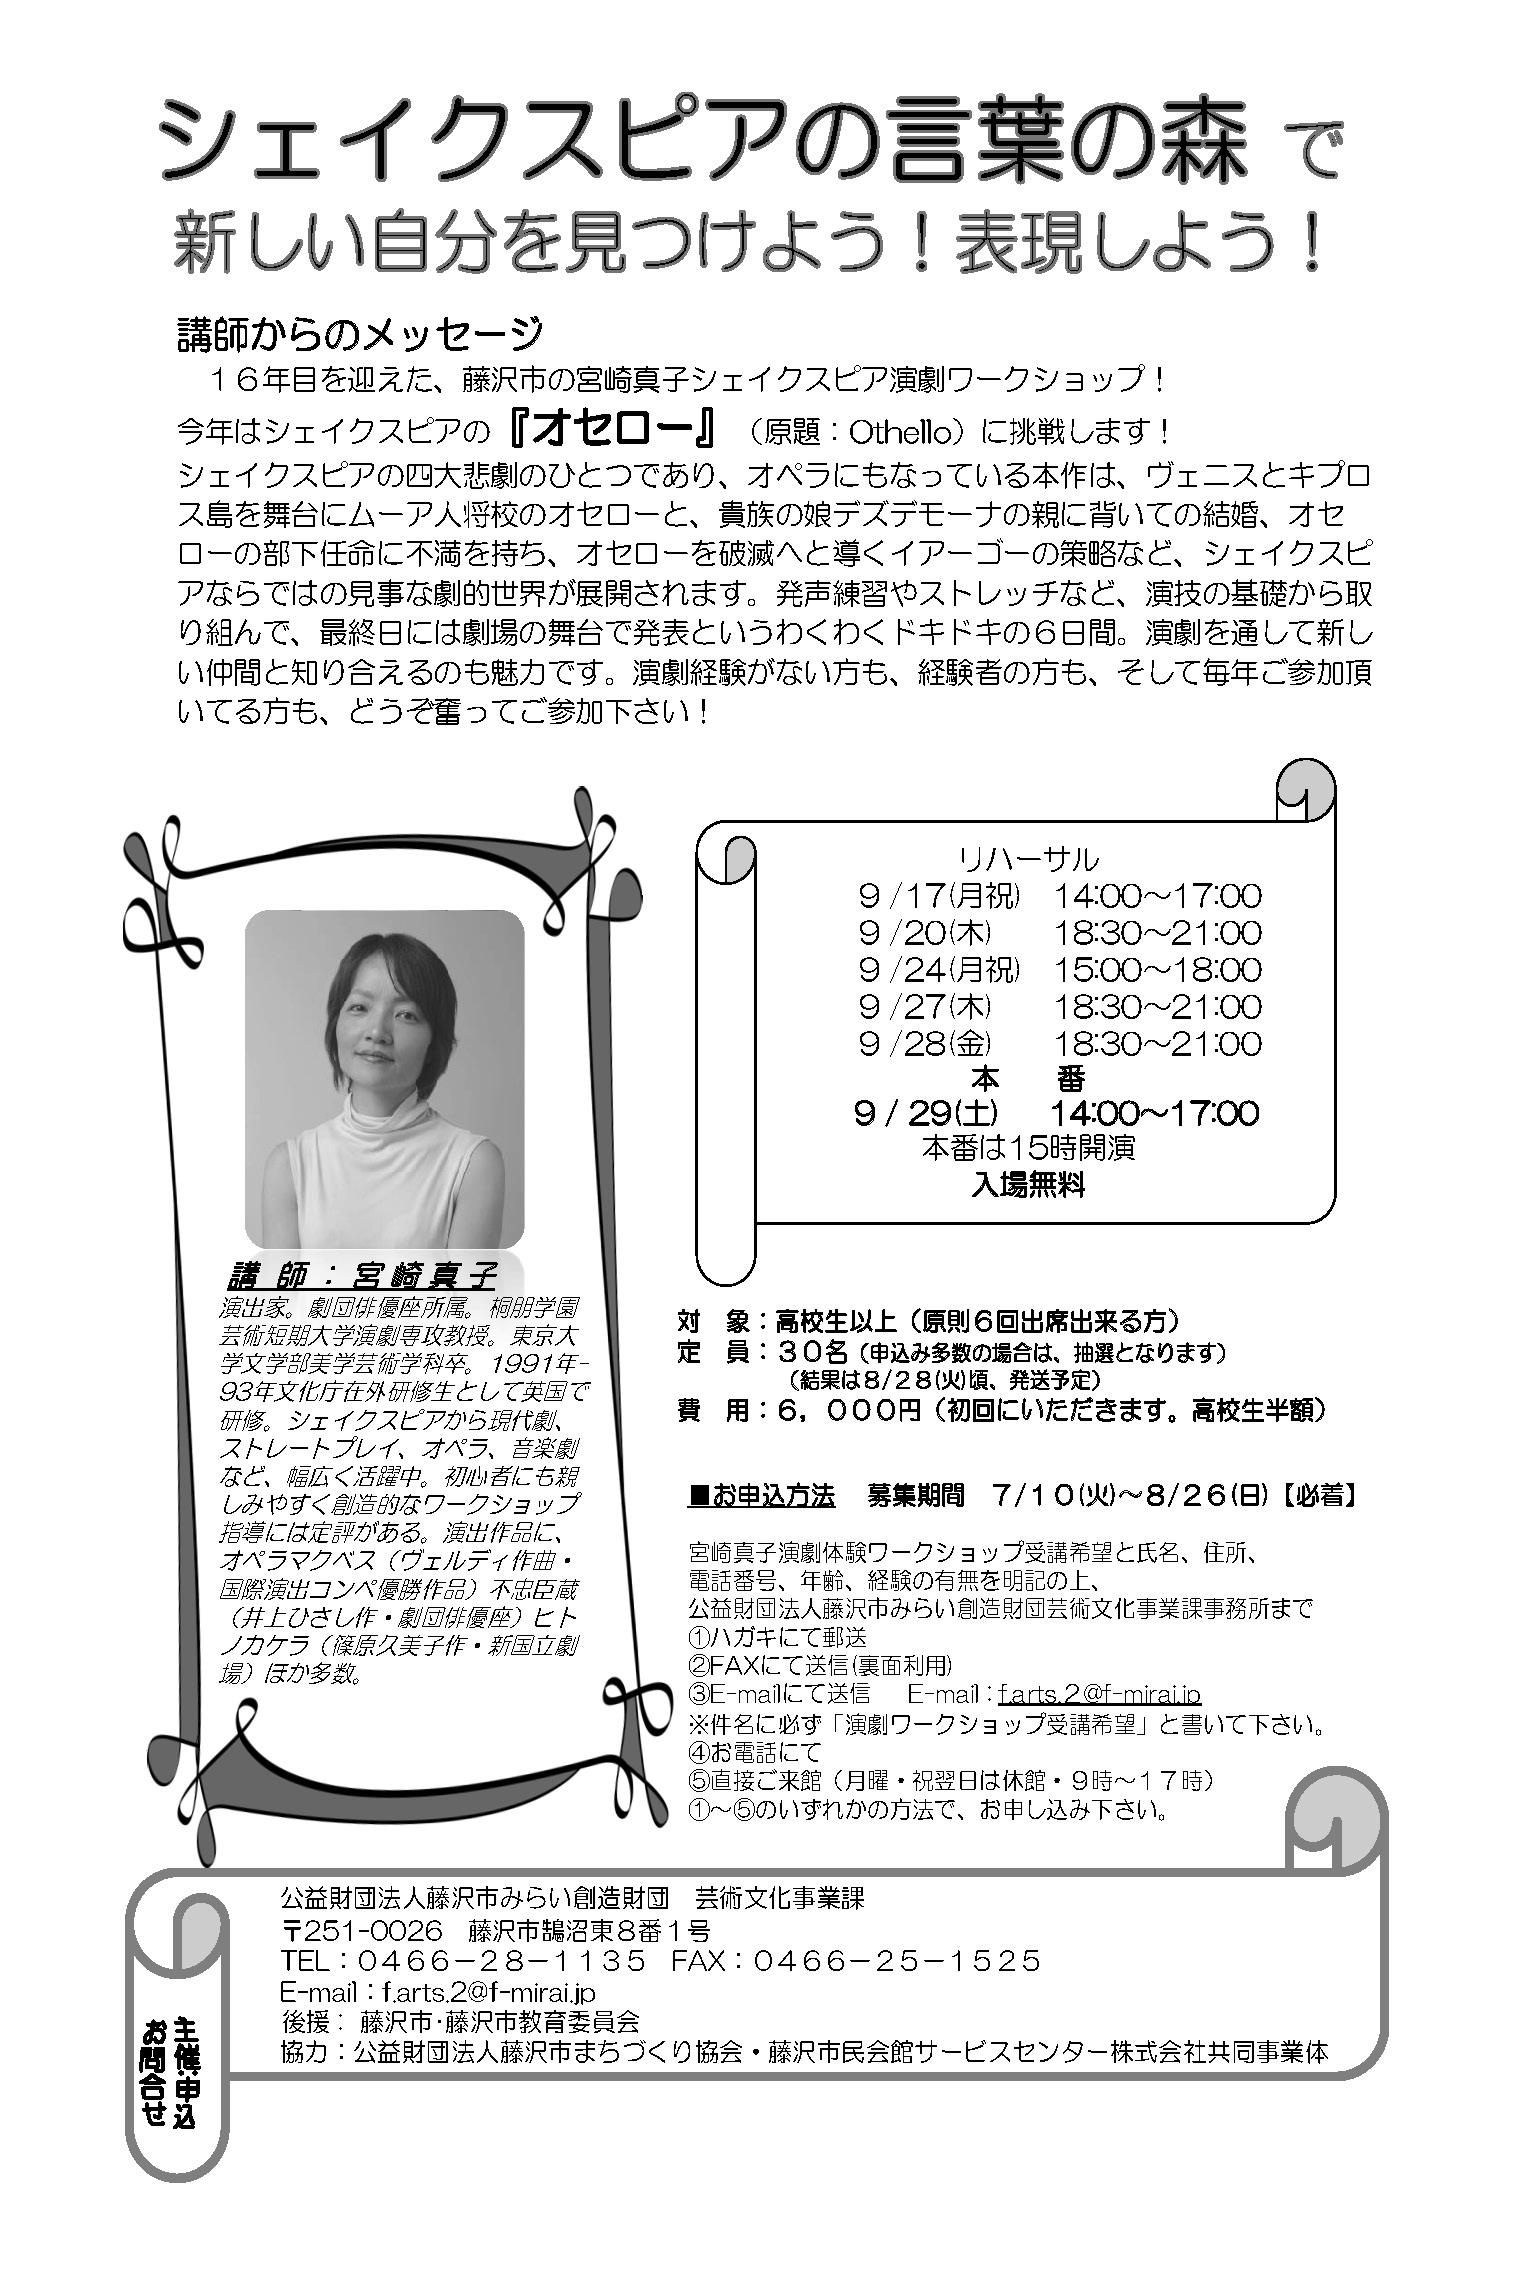 シェイクスピアの言葉の森 で
新しい自分を見つけよう！表現しよう！
講師からのメッセージ
１６年目を迎えた、藤沢市の宮崎真子シェイクスピア演劇ワークショップ！
今年はシェイクスピアの『オセロー』（原題：Othello）に挑戦します！
シェイクスピアの四大悲劇のひとつであり、オペラにもなっている本作は、ヴェニスとキプロ
ス島を舞台にムーア人将校のオセローと、貴族の娘デズデモーナの親に背いての結婚、オセ
ローの部下任命に不満を持ち、オセローを破滅へと導くイアーゴーの策略など、シェイクスピ
アならではの見事な劇的世界が展開されます。発声練習やストレッチなど、演技の基礎から取
り組んで、最終日には劇場の舞台で発表というわくわくドキドキの６日間。演劇を通して新し
い仲間と知り合えるのも魅力です。演劇経験がない方も、経験者の方も、そして毎年ご参加頂
いてる方も、どうぞ奮ってご参加下さい！
リハーサル
９/17(月祝) 14:00～17:00
９/20(木) 18:30～21:00
９/24(月祝) 15:00～18:00
９/27(木) 18:30～21:00
９/28(金) 18:30～21:00
本　番
９/ 29(土) 14:00～17:00
本番は15時開演
入場無料
講 師 ： 宮 崎 真 子
演出家。劇団俳優座所属。桐朋学園
芸術短期大学演劇専攻教授。東京大
学文学部美学芸術学科卒。1991年-
93年文化庁在外研修生として英国で
研修。シェイクスピアから現代劇、
ストレートプレイ、オペラ、音楽劇
など、幅広く活躍中。初心者にも親
しみやすく創造的なワークショップ
指導には定評がある。演出作品に、
オペラマクベス（ヴェルディ作曲・
国際演出コンペ優勝作品）不忠臣蔵
（井上ひさし作・劇団俳優座）ヒト
ノカケラ（篠原久美子作・新国立劇
場）ほか多数。
対　象：高校生以上（原則６回出席出来る方）
定　員：３０名（申込み多数の場合は、抽選となります）
（結果は８/２８(火)頃、発送予定）
費　用：６，０００円（初回にいただきます。高校生半額）
■お申込方法　募集期間　７/１０(火)～８/２６(日)【必着】
宮崎真子演劇体験ワークショップ受講希望と氏名、住所、
電話番号、年齢、経験の有無を明記の上、
公益財団法人藤沢市みらい創造財団芸術文化事業課事務所まで
①ハガキにて郵送
②FAXにて送信(裏面利用)
③E-mailにて送信　E-mail：f.arts.2@f-mirai.jp
※件名に必ず「演劇ワークショップ受講希望」と書いて下さい。
④お電話にて
⑤直接ご来館（月曜・祝翌日は休館・９時～１７時）
①～⑤のいずれかの方法で、お申し込み下さい。
主催・申込
お問合せ
公益財団法人藤沢市みらい創造財団　芸術文化事業課
〒251-0026　藤沢市鵠沼東８番１号
TEL：０４６６－２８－１１３５　FAX：０４６６－２５－１５２５
E-mail：f.arts.2@f-mirai.jp
後援：藤沢市･藤沢市教育委員会
協力：公益財団法人藤沢市まちづくり協会・藤沢市民会館サービスセンター株式会社共同事業体